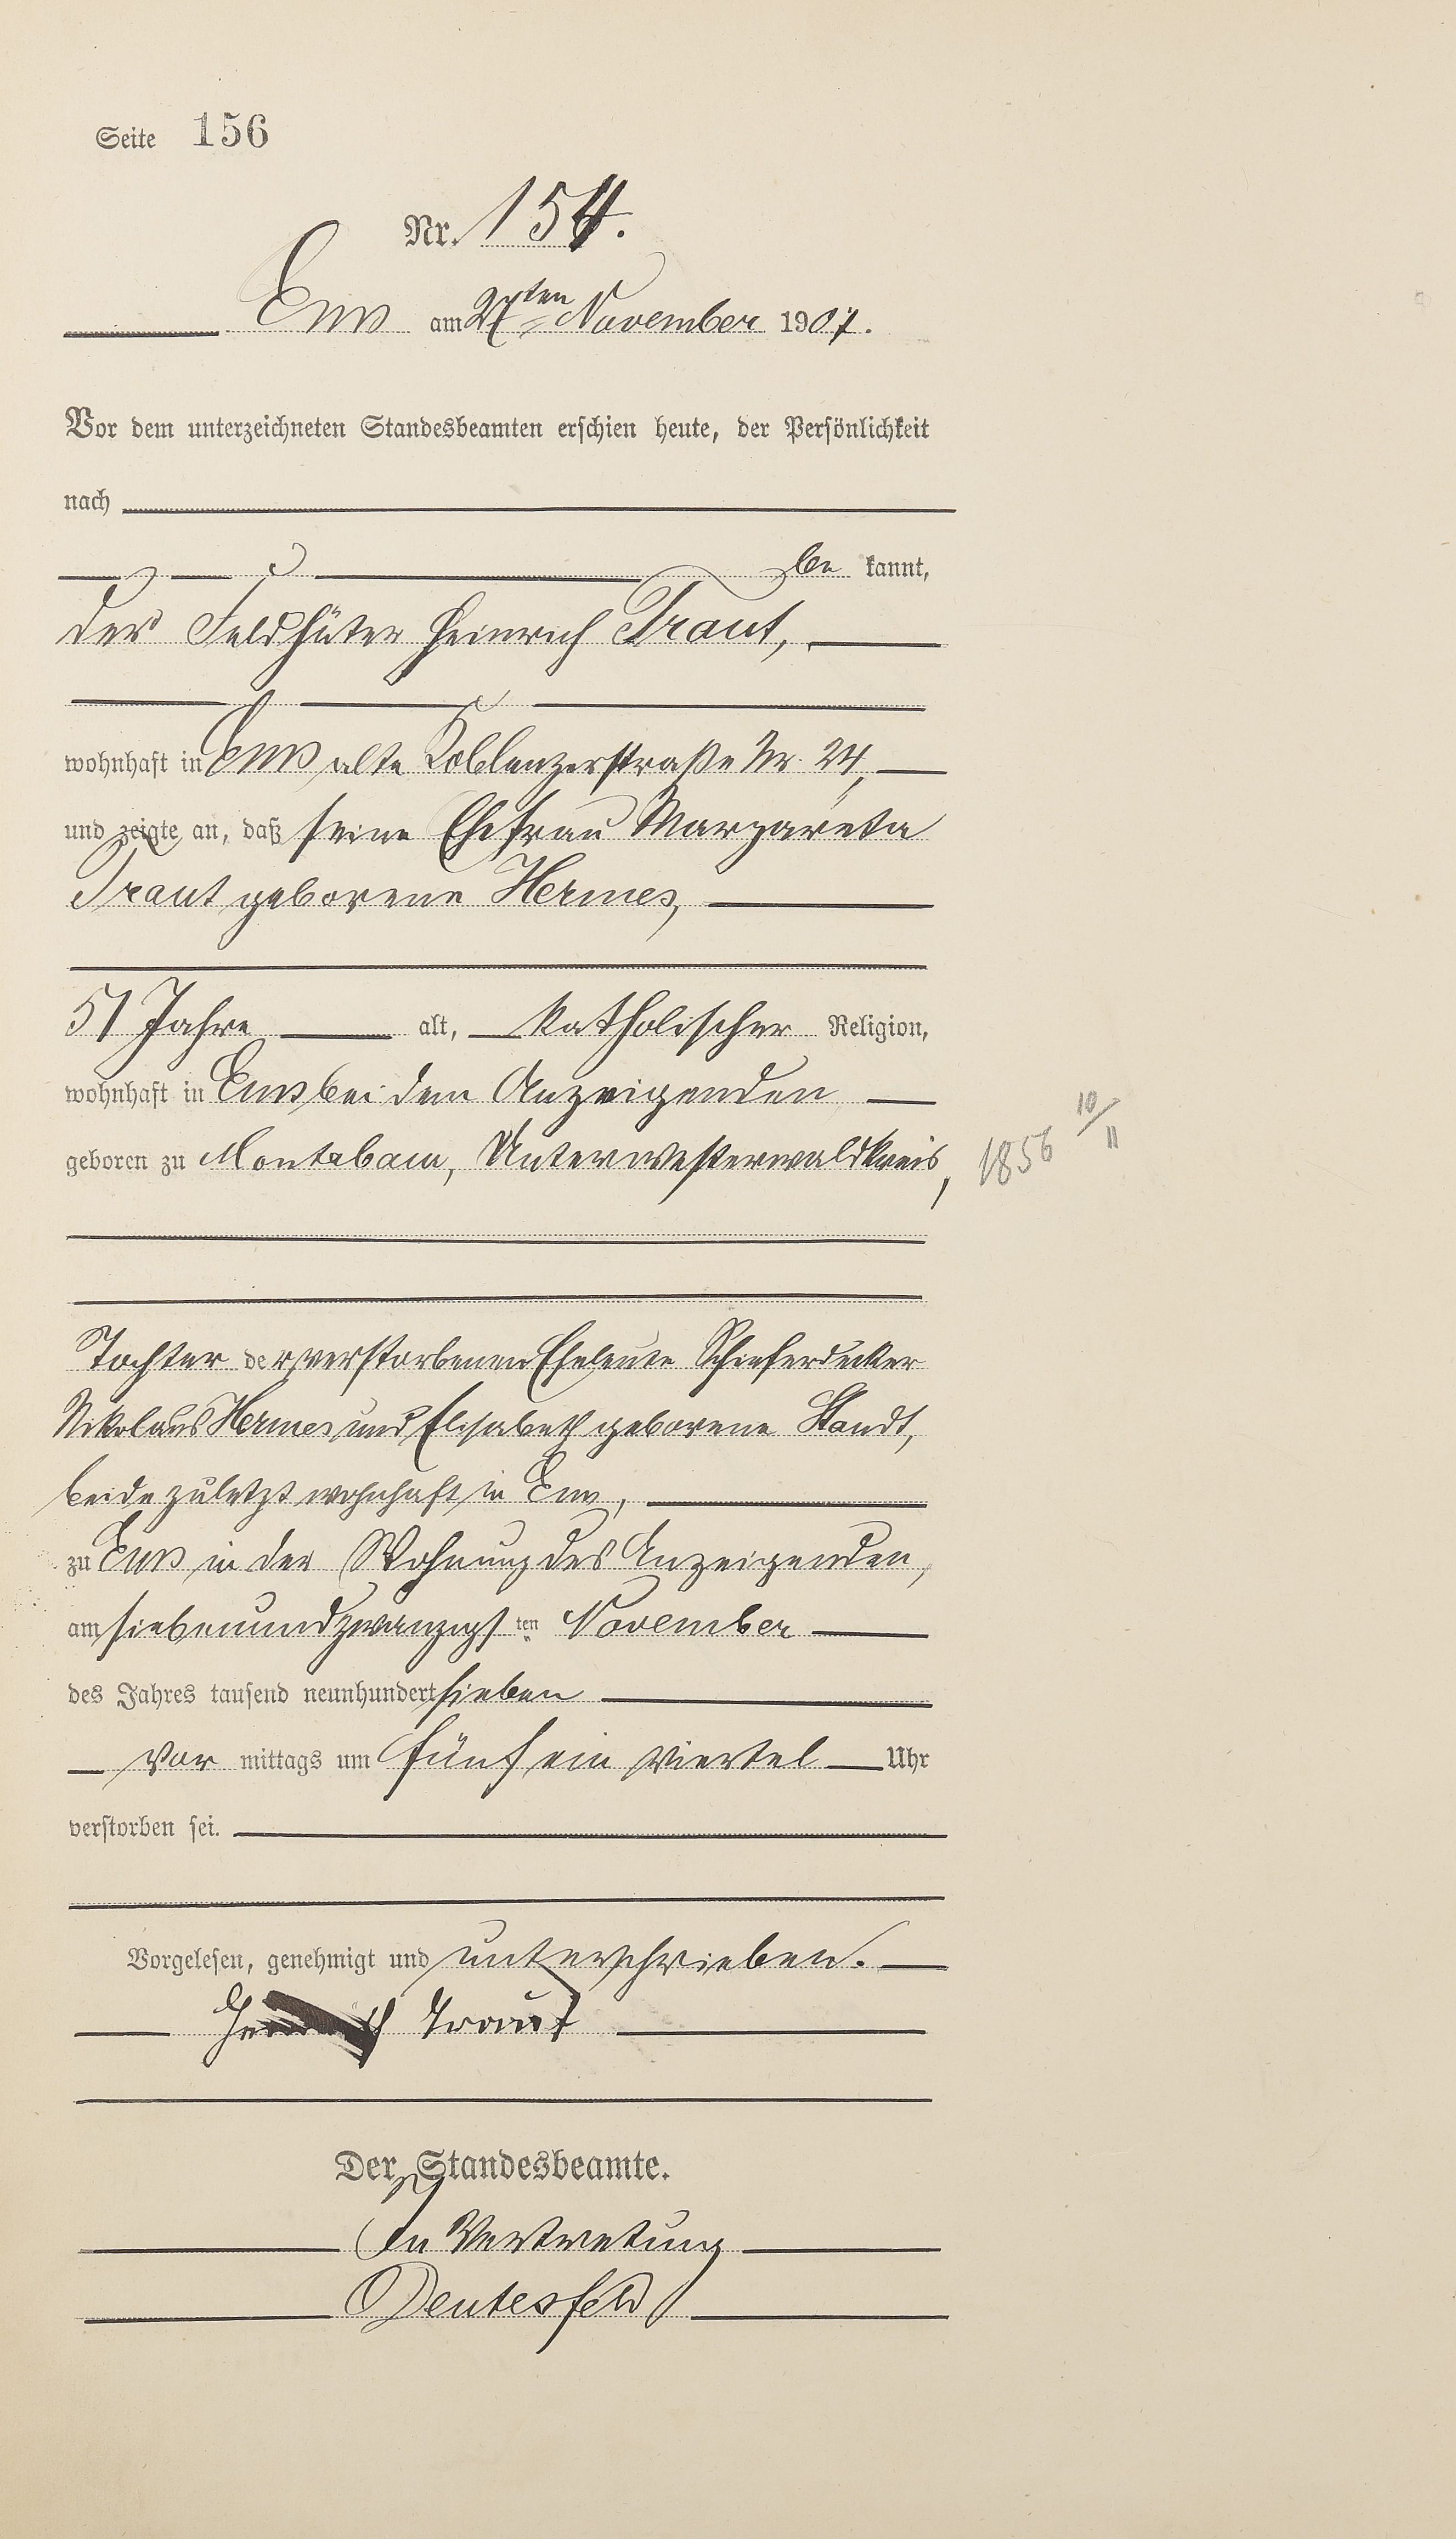 Seite 156
Nr. 154.
Ems am 27ten November 1907.
Vor dem unterzeichneten Standesbeamten erschien heute, der Persönlichkeit
nach
be kannt,
der Feldhüter Heinrich Traut,
wohnhaft in Ems alte Koblenzerstraße Nr. 24,
und zeigte an, daß seine Ehefrau Margareta
Traut geborene Hermes,
51 Jahre alt, katholischer Religion,
wohnhaft in Ems bei dem Anzeigenden
geboren zu Montabaur, Unterwesterwaldkreis, 1856 10/11
Tochter der verstorbenen Eheleute Schieferdecker
Nikolaus Hermes und Elisabeth geborene Standt,
beide zuletzt wohnhaft in Ems,
zu Ems in der Wohnung des Anzeigenden,
am siebenundzwanzigsten November
des Jahres tausend neunhundert sieben
vor mittags um fünf ein viertel Uhr
verstorben sei.
Vorgelesen, genehmigt und unterschrieben.
Heinrich Traut
Der Standesbeamte.
In Vertretung
Deutesfeld